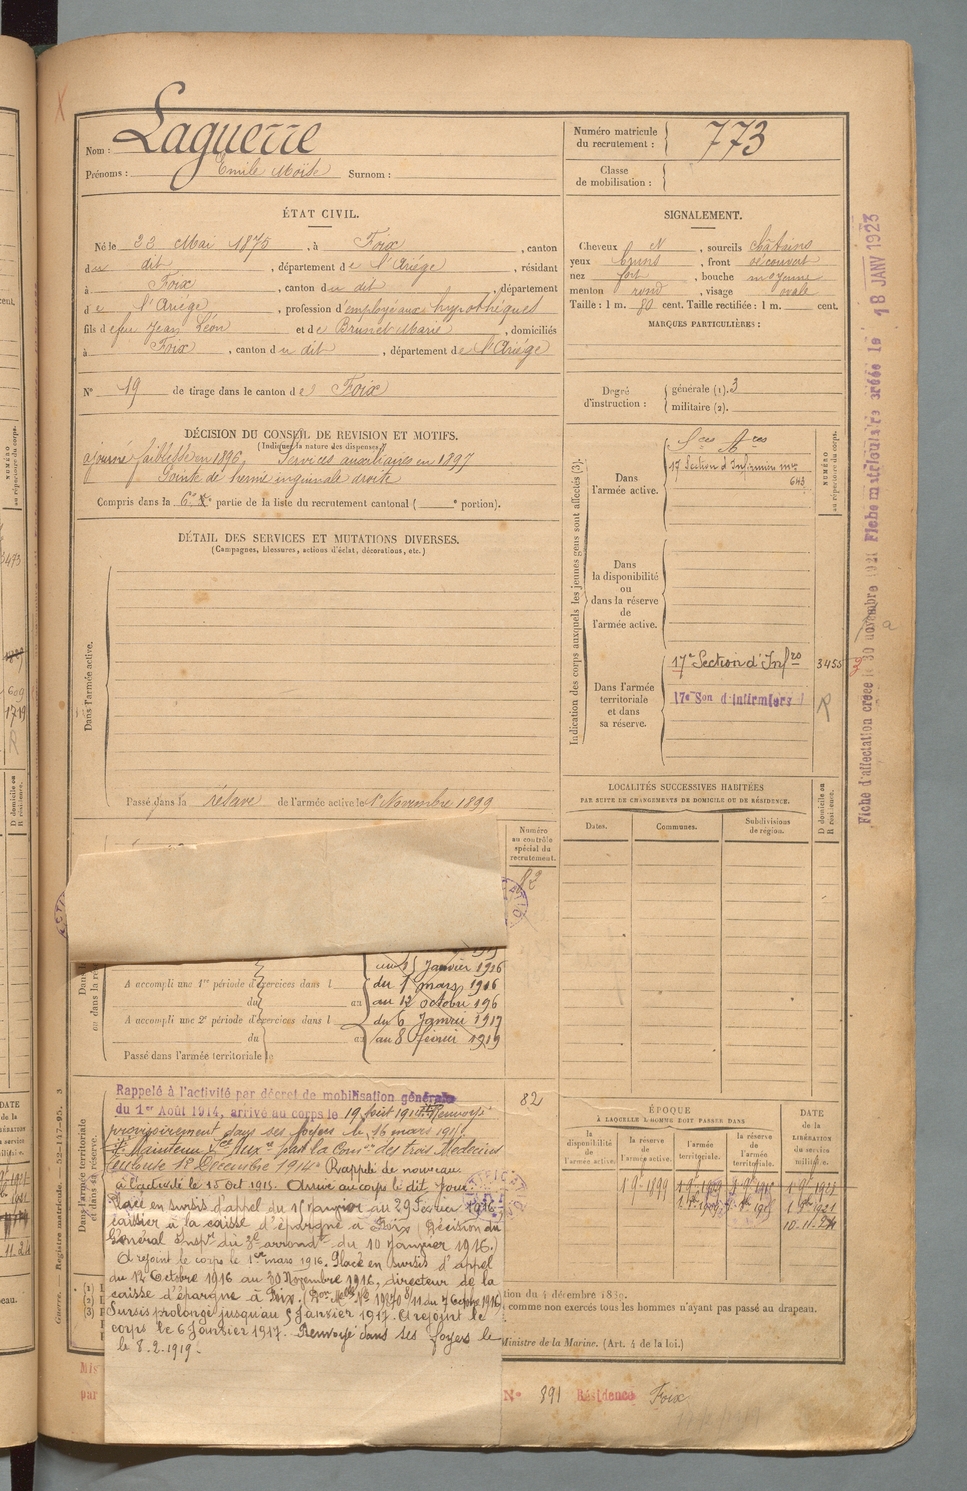 Laguerre
Nom :
Prénoms : Emile Moïse Surnom :
Numéro matricule
du recrutement : 773
Classe
de mobilisation :
ÉTAT CIVIL.
Né le 23 Mai 1875, à Foix, canton
du dit, département de l'Ariége, résidant
à Foix, canton du dit, département
de l'Ariége, profession d'employé aux hypothéques
fils de feu Jean Léon et de Brunet Marie, domiciliés
à Foix, canton du dit, département de l'Ariége
N° 19 de tirage dans le canton de Foix
SIGNALEMENT.
Cheveux N, sourcils châtains
yeux bruns, front découvert
nez fort, bouche moyenne
menton rond, visage ovale
Taille : 1 m. 80 cent. Taille rectifiée : 1 m. cent.
MARQUES PARTICULIÈRES :
Degré
d'instruction :
générale (1). 3
militaire (2).
DÉCISION DU CONSEIL DE REVISION ET MOTIFS.
(Indiquer la nature des dispenses.)
ajourné faiblesse en 1896, Services auxiliaires en 1897
Pointe de hernie inguinale droite
Compris dans la 6e partie de la liste du recrutement cantonal ( e portion).
DÉTAIL DES SERVICES ET MUTATIONS DIVERSES.
(Campagnes, blessures, actions d'éclat, décorations, etc.)
Dans l'armée active.
Passé dans la réserve de l'armée active le 1er Novembre 1899
Indication des corps auxquels les jeunes gens sont affectés (3).
NUMÉRO
au répertoire du corps.
Dans
l'armée active.
17 Section d'Infirmiers mres
643
Dans
la disponibilité
ou
dans la réserve
de
l'armée active.
Dans l'armée
territoriale
et dans
sa réserve.
17e Section d'Infres
3455
17e Son d'infirmiers
R
Fiche d'affectation créée le 30 novembre Fiche matriculaire créée le 18 JANV 1923
LOCALITÉS SUCCESSIVES HABITÉES
PAR SUITE DE CHANGEMENTS DE DOMICILE OU DE RÉSIDENCE.
Dates.
Communes.
Subdivisions
de région.
D domicile ou
R résidence.
Numéro
au contrôle
spécial du
recrutement.
au 15 Janvier 1916
A accompli une 1re période d'exercices dans l
du 1 mars 1916
du au
au 12 octobre 196
A accompli une 2e période d'exercices dans l
du 6 Janvier 1917
du au
au 8 février 1919
Passé dans l'armée territoriale le
Dans l'armée territoriale
et dans sa réserve.
82
Rappelé à l'activité par décret de mobilisation générale
du 1er Août 1914, arrivé au corps le 19 Août 1914. Renvoyé
provisoirement dans ses foyers le 16 mars 191
Maintenu Sce Auxre par la Comon des trois Médecins
Toulouse 18 Décembre 1914. Rappelé de nouveau
à l'activité le 15 Oct 1915. Arrivé au corps le dit jour.
Placé en sursis d'appel du 15 Janvier au 29 Février 1916
caissier à la caisse d'épargne à Foix (Décision du
Général Inspr du 3e arrondt du 10 Janvier 1916.)
A rejoint le corps le 1er mars 1916. Placé en sursis d'appel
du 12 Octobre 1916 au 30 Novembre 1916, directeur de la
caisse d'épargne à Foix. ( Melle No 19270 8/11 du 7 Octobre 1916)
Sursis prolongé jusqu'au 5 Janvier 1917. A rejoint le
corps le 6 Janvier 1917. Renvoyé dans ses foyers le
le 8.2.1919.
ÉPOQUE
À LAQUELLE L'HOMME DOIT PASSER DANS
DATE
de la
LIBÉRATION
du service
militaire.
la
disponibilité
de l'armée active.
la réserve
de
l'armée active.
l'armée
territoriale.
la réserve
de
l'armée
territoriale.
1 9-1899
10.11.24
tion du 4 décembre 1830.
comme non exercés tous les hommes n'ayant pas passé au drapeau.
Ministre de la Marine. (Art. 4 de la loi.)
Guerre. — Registre matricule. 52-147-95. 3
Mis
par
N° 391 Résidence Foix